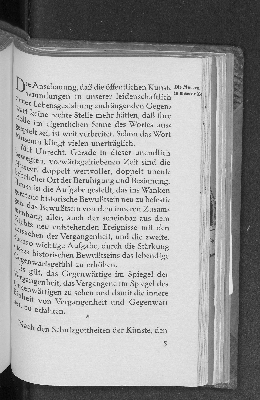 Die Anschauung, daß die öffentlichen Kunst-
sammlungen in unserer leidenschaftlich
Lebensgestaltung anhängenden Gegen-
wart keine rechte Stelle mehr hätten, daß ihre
Rolle im eigentlichen Sinne des Wortes aus-
gespielt sei, ist weit verbreitet. Schon das Wort
Museum klingt vielen unerträglich.
Mit Unrecht. Gerade in dieser unendlich
bewegten, vorwärtsgetriebenen Zeit sind die
Museen doppelt wertvoller, doppelt
Ort der Beruhigung und Besinnung.
ist die Aufgabe gestellt, das ins Wanken
historische Bewußtsein neu zu befesti-
gen, das Bewußtsein von dem inneren Zusam-
menhang aller, auch der scheinbar aus dem
Nichts neu entstehenden Ereignisse mit den
der Vergangenheit, und die zweite,
wichtige Aufgabe, durch die Stärkung
historischen Bewußtseins das lebendige
Gegenwartsgefühl zu erhöhen.
Es gilt, das Gegenwärtige im Spiegel der
Vergangenheit, das Vergangene im Spiegel des
Gegenwärtigen zu sehen und damit die innere
Einheit von Vergangenheit und Gegenwart
zu erfahren.
*
Nach den Schutzgottheiten der Künste, den
5
Die Museen